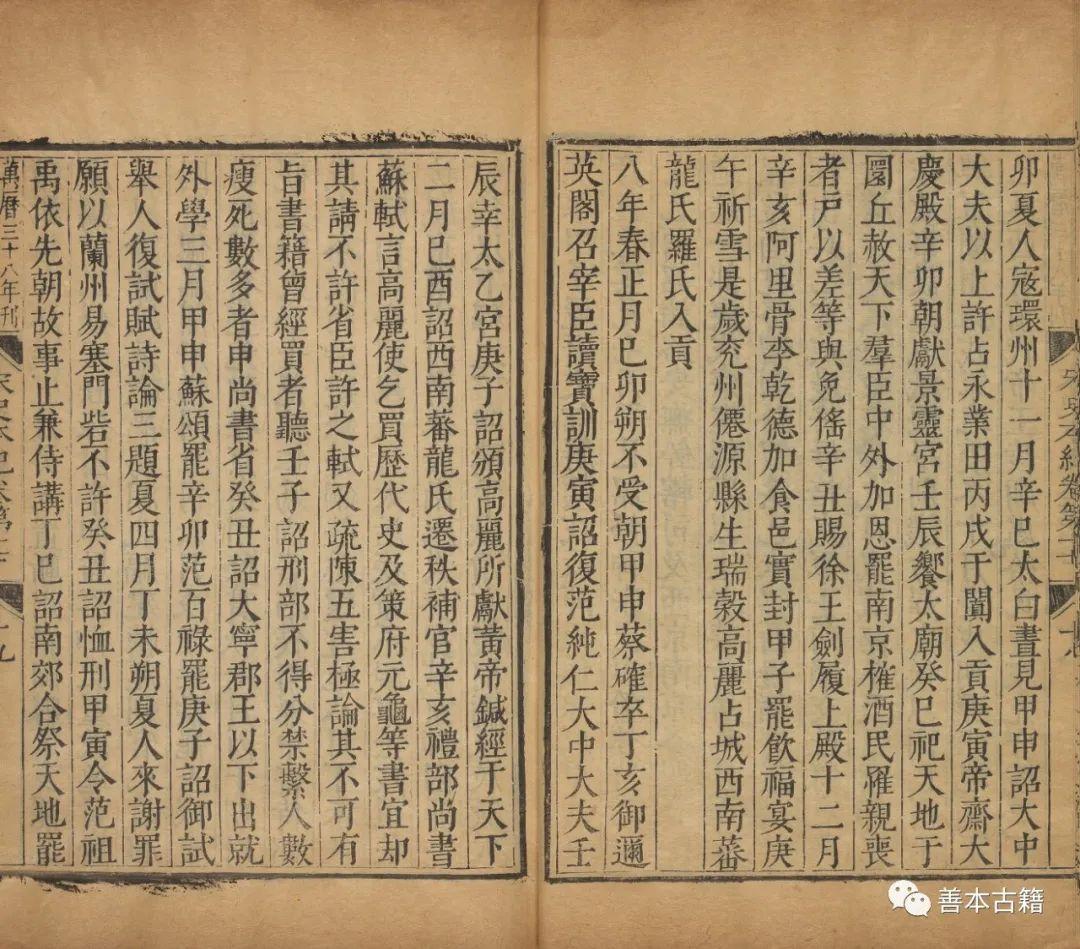 卯夏人寇環州十一月辛巳太白晝見甲申詔大中
大夫以上許占永業田丙戌于闐入貢庚寅帝齋大
慶殿辛卯朝獻景靈宮壬辰饗太廟癸巳祀天地于
圜丘赦天下羣臣中外加恩罷南京榷酒民罹親喪
者戶以差等與免傜辛丑賜徐王劍履上殿十二月
辛亥阿里骨李乾德加食邑實封甲子罷飲福宴庚
午祈雪是歲兖州僊源縣生瑞糓高麗占城西南蕃
龍氏羅氏入貢
八年春正月巳卯朔不受朝甲申蔡確卒丁亥御邇
英閣召宰臣讀寶訓庚寅詔復范純仁大中大夫壬
辰幸太乙宮庚子詔頒高麗所獻黃帝鍼經于天下
二月巳酉詔西南蕃龍氏遷秩補官辛亥禮部尚書
蘇軾言高麗使乞買歷代史及策府元龜等書宜却
其請不許省臣許之軾又疏陳五害極論其不可有
旨書籍曾經買者聽壬子詔刑部不得分禁繫人數
瘦死數多者申尚書省癸丑詔大寧郡王以下出就
外學三月甲申蘇頌罷辛卯范百祿罷庚子詔御試
舉人復試賦詩論三題夏四月丁未朔夏人來謝罪
願以蘭州易塞門砦不許癸丑詔恤刑甲寅令范祖
禹依先朝故事止兼侍講丁巳詔南郊合祭天地罷
萬曆三十八年刊
十九
善本古籍